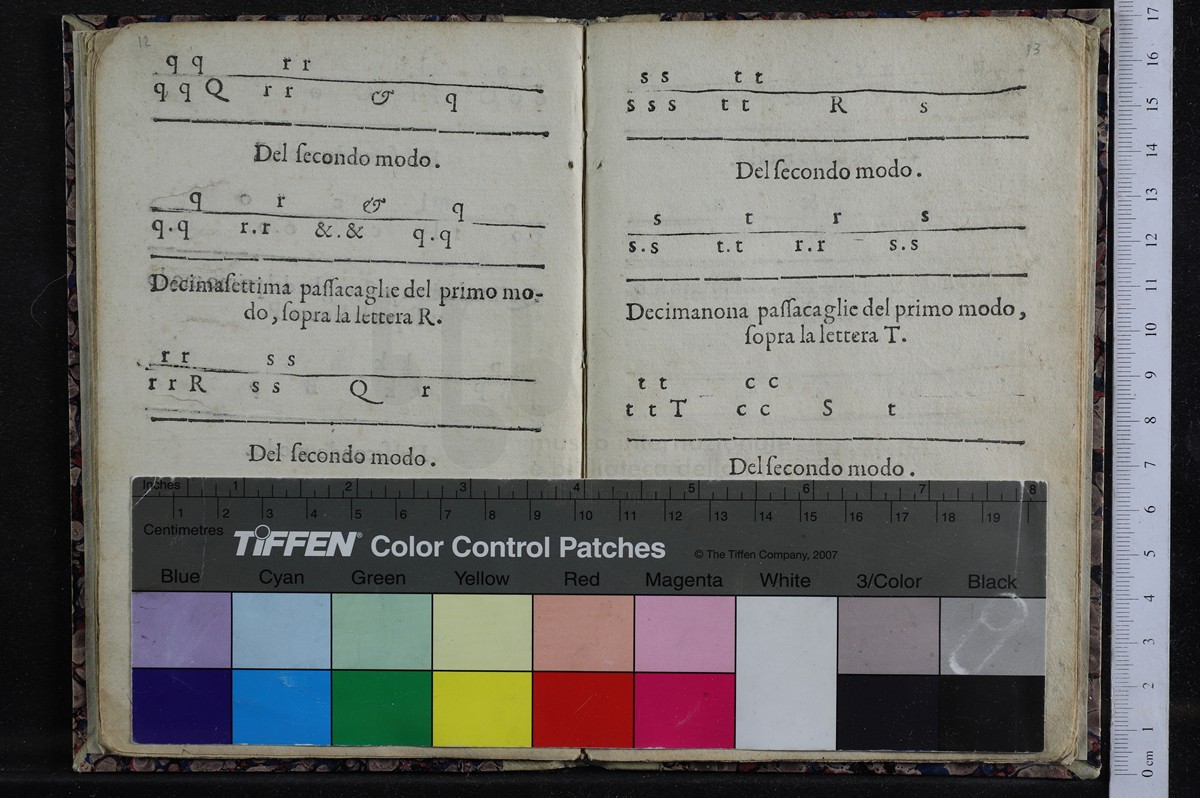 12
q q r r
q q Q r r & q
Del ſecondo modo.
q r & q
q.q r.r &.& q.q
Decimaſettima paſſacaglie del primo mo-
do, ſopra la lettera R.
r r s s
r r R s s Q r
Del ſecondo modo.
13
s s t t
s s s t t R s
Del ſecondo modo.
s t r s
s.s t.t r.r s.s
Decimanona paſſacaglie del primo modo,
ſopra la lettera T.
t t c c
t t T c c S t
Del ſecondo modo.
Inches 1 2 3 4 5 6 7 8
1 2 3 4 5 6 7 8 9 10 11 12 13 14 15 16 17 18 19
Centimetres
TIFFEN® Color Control Patches © The Tiffen Company, 2007
Blue Cyan Green Yellow Red Magenta White 3/Color Black
17
16
15
14
13
12
11
10
9
8
7
6
5
4
3
2
1
0 cm